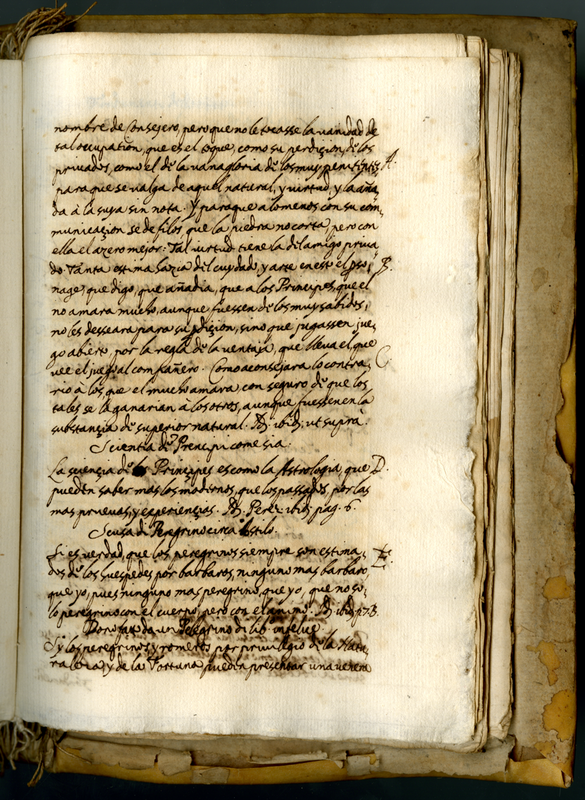 nombre de Consejero, pero que no le tocasse la vanidad de
tal occupation, que es el toque, como su perdiçion, de los
privados, como el de la vanagloria de los muy penitentes, A.
para que se valga de aquel natural, y virtud, y la aña,
da à la suya sin nota. Y para que a lo menos con su com,
municaçion se dé filos, que la piedra no corta, pero con
ella el azero mejor: Tal virtud tiene la del amigo priva
do. Tanta estima hazia del cuydado, y arte en este el pso, B.
nage, que digo, que añadia, que a los Principes, que el
no amara mucho, aunque fuessen de los muy sabidos,
no les desseara para su pdiçion, sino que jugassen jue,
go abierto, por la regla de la ventaja, que lleva el que
vee el juego al compañero. Como aconsejara lo contra, C
rio à los que el mucho amara, con seguro de que los
tales se la ganarian à los otros, aunque fuessen en la
substançia de superior natural. ibid, ut suprà.
Scientia de Prencipi come sia.
La sciençia de los Principes es como la Astrologia, que D.
pueden saber mas los modernos, que los passados, por las
mas pruevas, y experiençias. Perez ibid. pag. 6.
Scusa di Peregrino circa Estilo.
Si es verdad, que los peregrinos siempre son estima, E.
dos de los huespedes por barbaros, ninguno mas barbaro,
que yo, pues ninguno mas peregrino, que yo, que no so,
lo peregrino con el cuerpo, pero con el animo. ibid. p. 73.
Dono fatto da un Pelegrino di lib.
Si los peregrinos, y romeros por privilegio de la Natu,
raleza, y de la Fortuna pueden presentar una venera